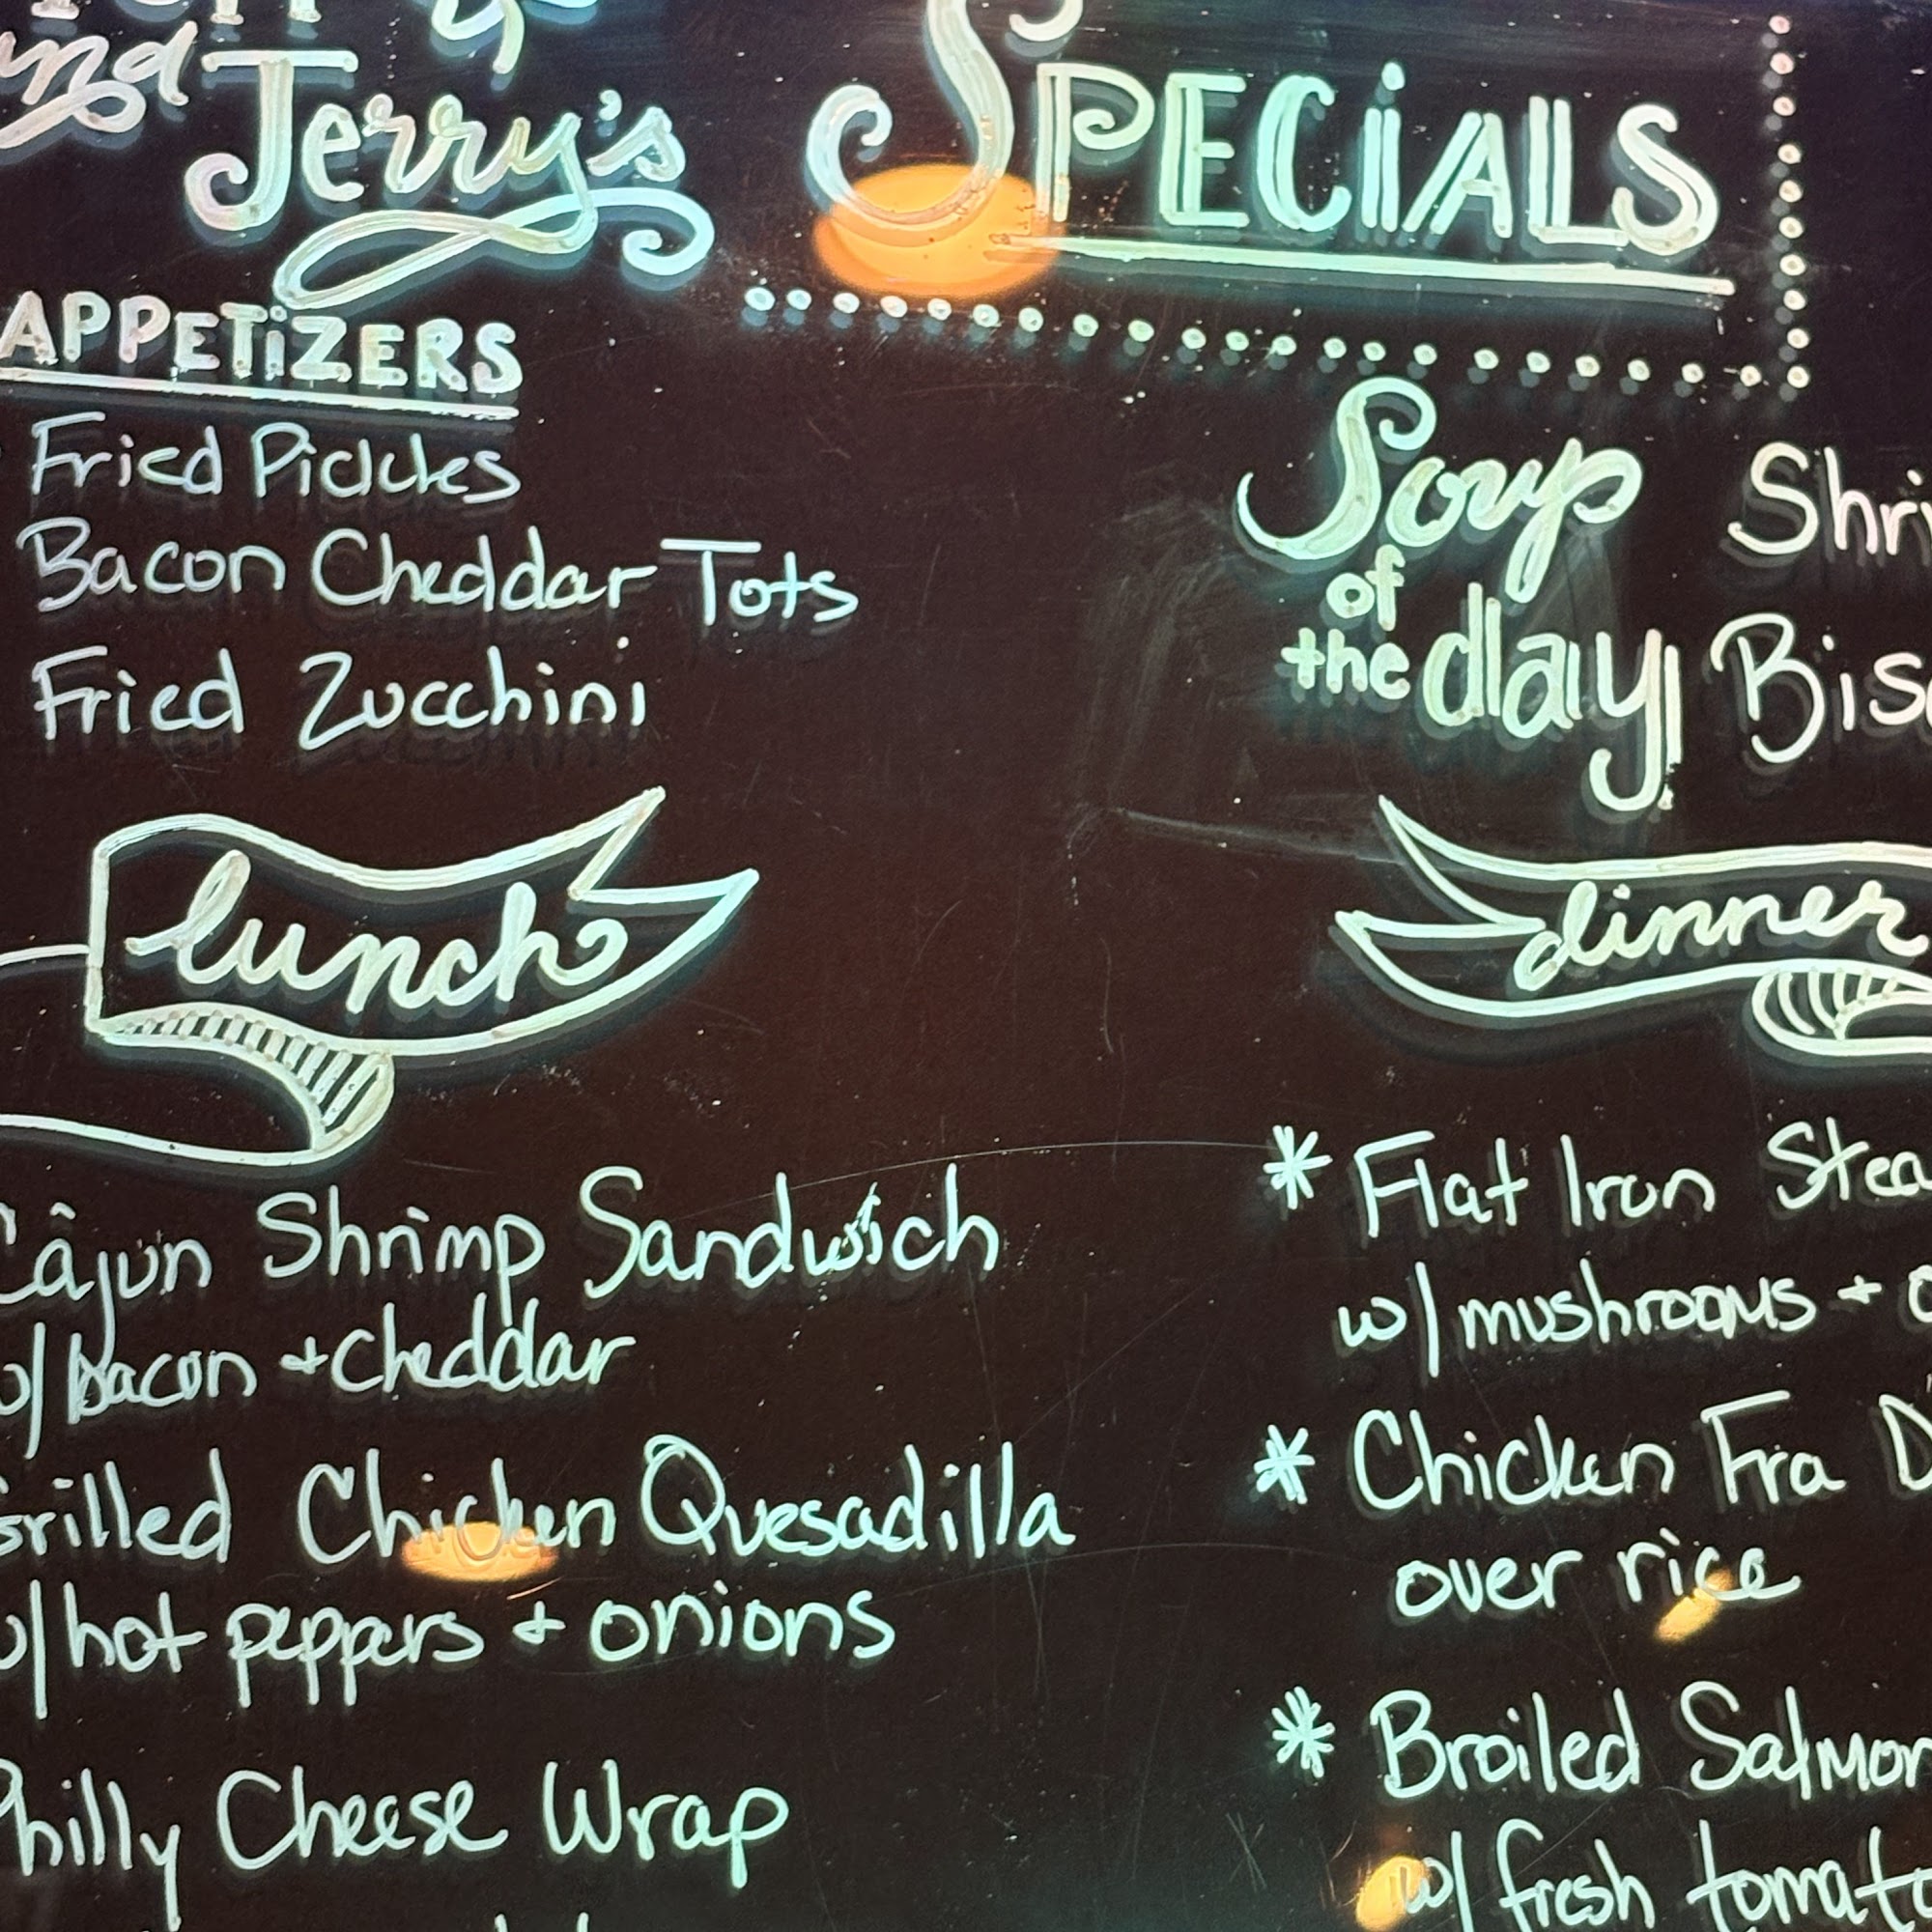 and
Jerry's
SPECiALS
APPETiZERS
Fried Pickles
Bacon Cheddar Tots
Fried Zucchini
Soup
of
the day
Shri
Bis
lunch
Cajun Shrimp Sandwich
w/ bacon + cheddar
Grilled Chicken Quesadilla
w/ hot peppers + onions
Philly Cheese Wrap
dinner
* Flat Iron Stea
w/ mushrooms +
* Chicken Fra D
over rice
* Broiled Salmon
w/ fresh tomato